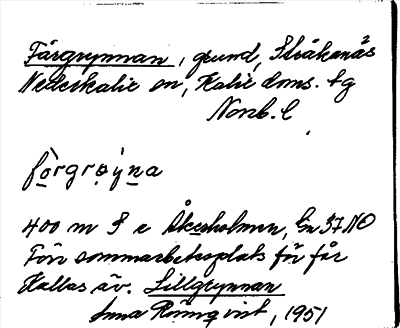 Färgrynnan, grund, Stråkanäs
Nederkalix sn, Kalix doms. tg
Norrb. l
fò̱rgrøýn̠a
400 m S e Åkesholmen, En 37 NO
Förr sommarbetesplats för får
Kallas äv. Lillgrynnan
Anna Rönnqvist, 1951